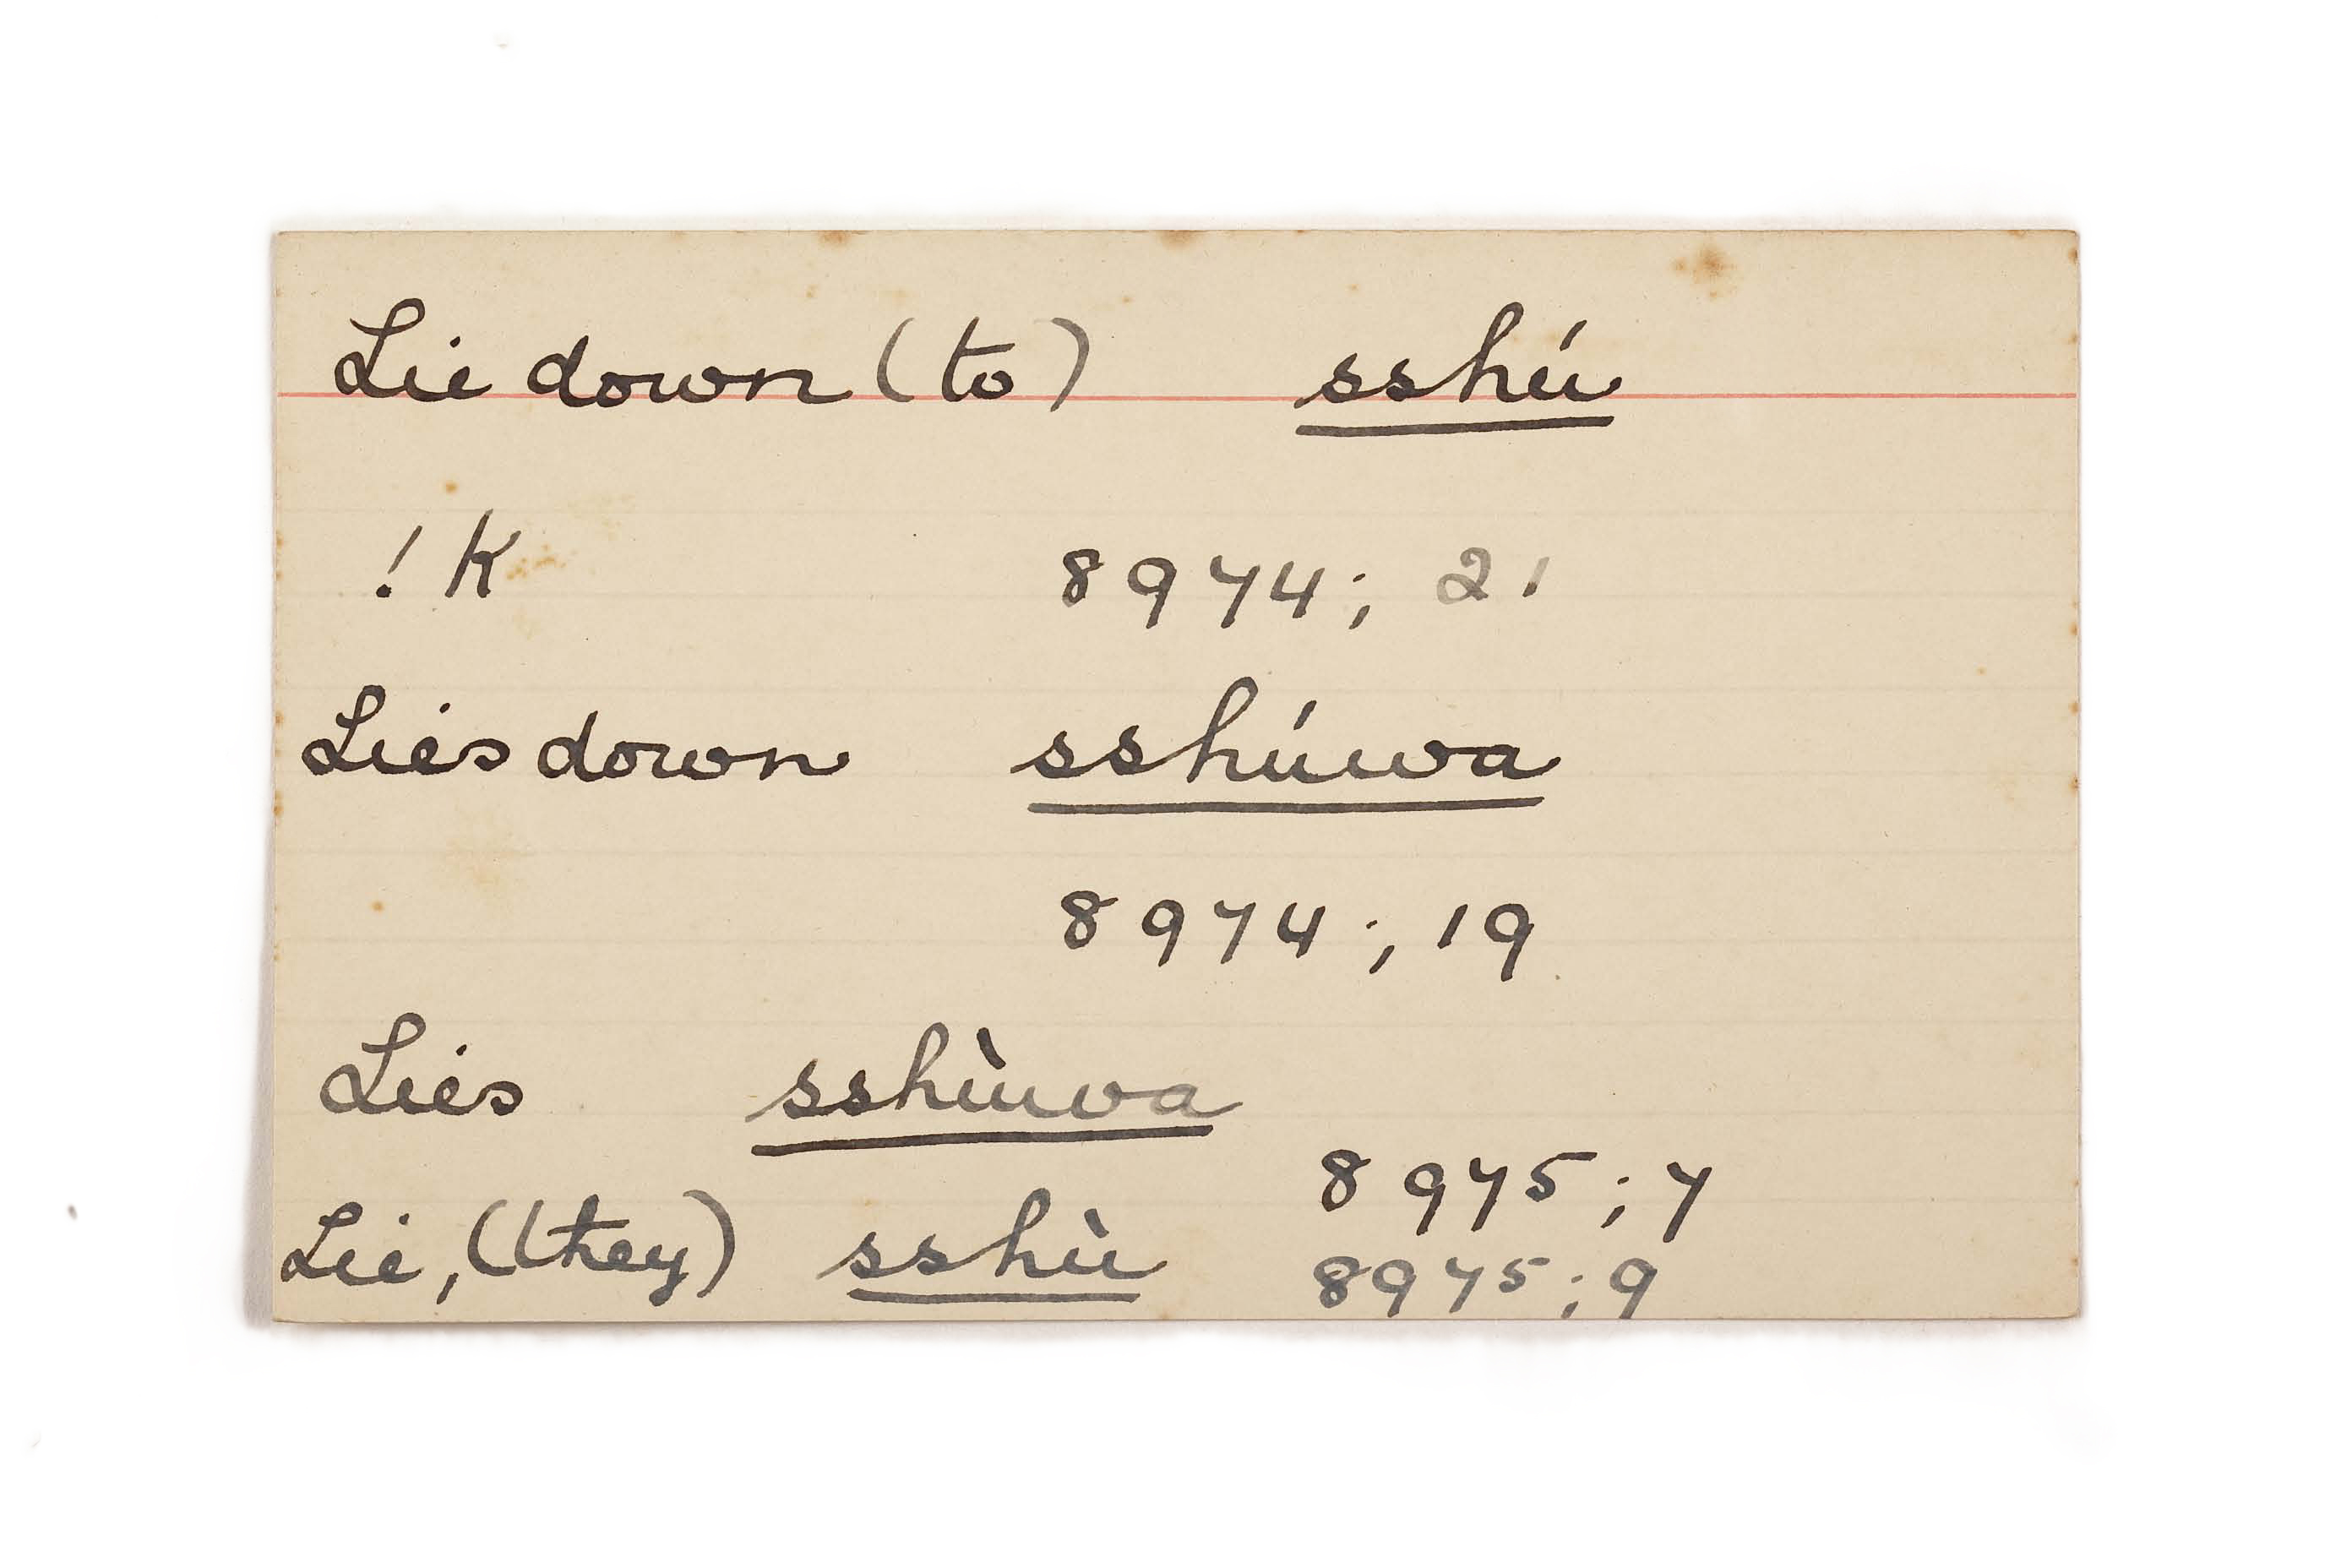 Lie down (to) sshú
!K 8974; 21
Lies down sshúwa
8974; 19
Lies sshùwa
8975; 7
Lie, (they) sshù 8975; 9